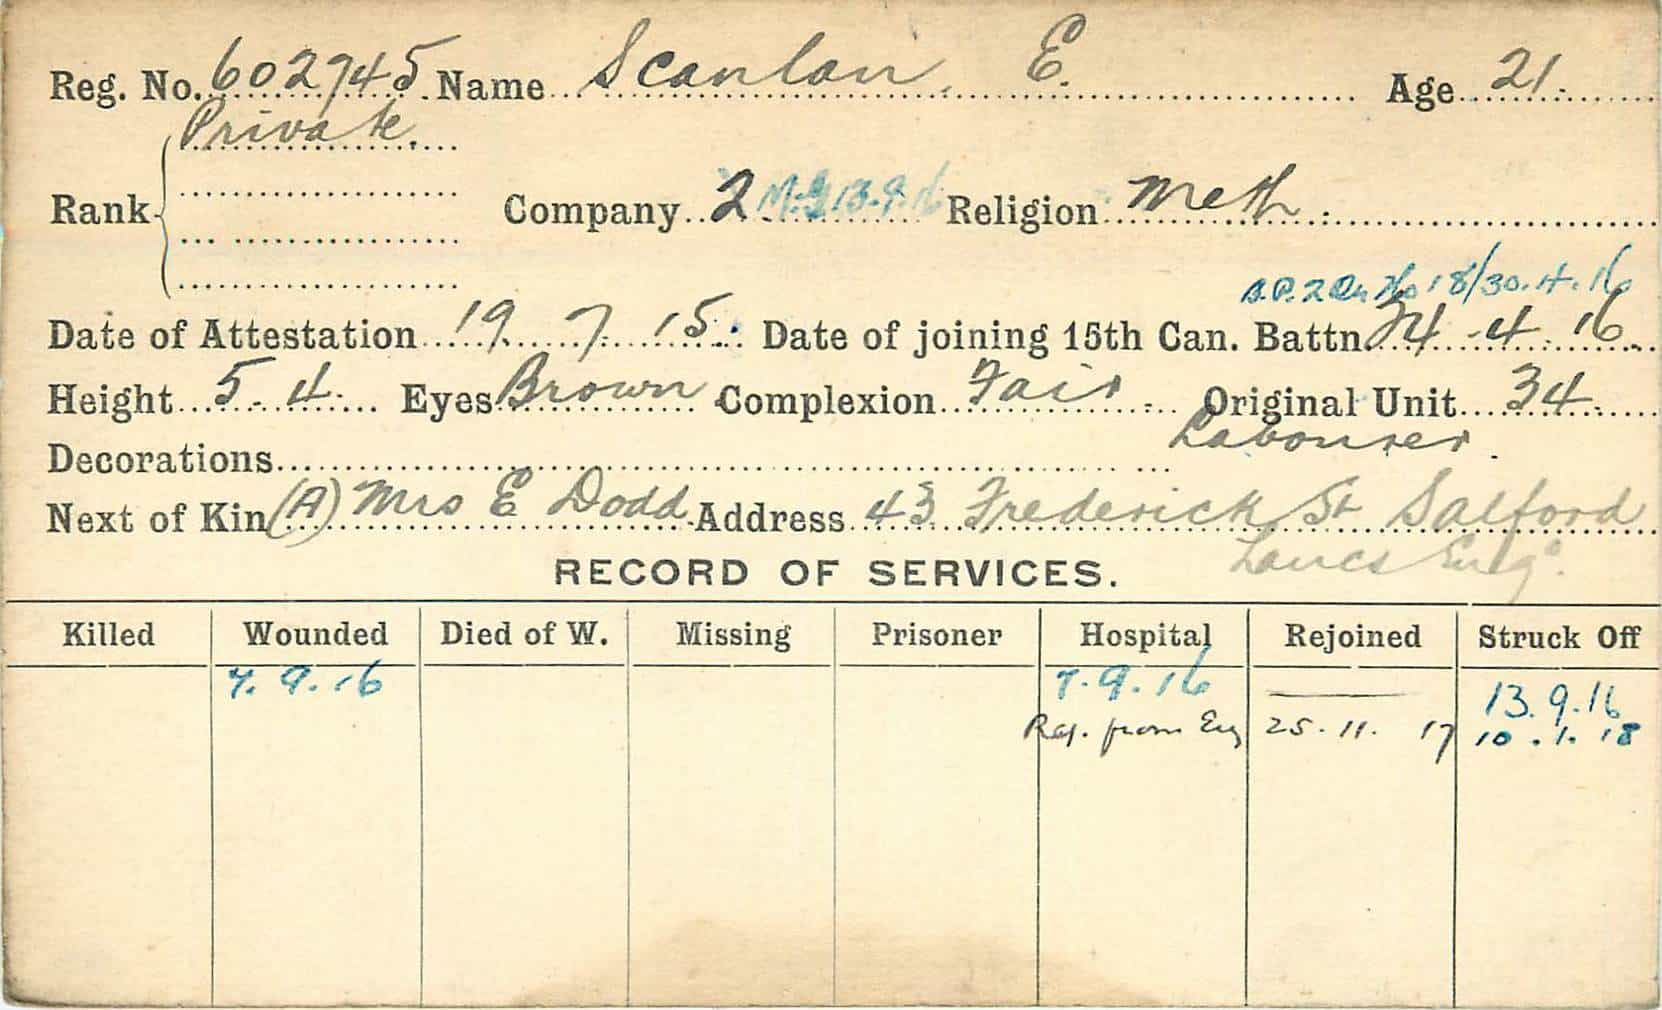 Reg. No. 602745 Name Scanlan, E. Age 21.
Private.
Rank
Company 2 M.G 13.9.16 Religion Meth.
B.P. 2 18/30.4.16
Date of Attestation 19. 7. 15. Date of joining 15th Can. Battn. 24-4-16.
Height 5.4. Eyes Brown Complexion Fair Original Unit 34.
Decorations Labourer.
Next of Kin (A) Mrs E Dodd Address 43 Frederick St Salford
Lancs Eng.
RECORD OF SERVICES.
Killed Wounded Died of W. Missing Prisoner Hospital Rejoined Struck Off
7.9.16 7.9.16 13.9.16
Rej. from Eng 25.11.17 10.1.18